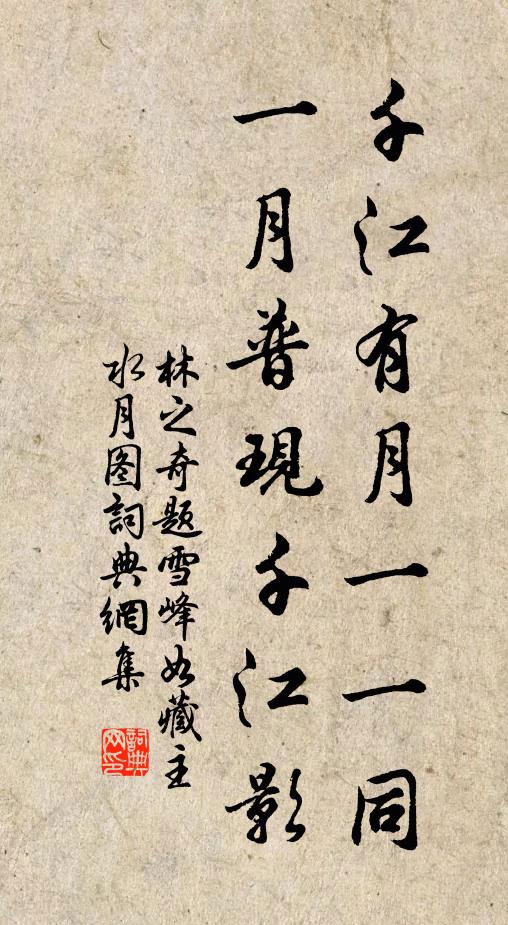 千江有月一一同
一月普現千江影
林之奇題雪峰如藏主
水月图詞典網集
詞典
网印